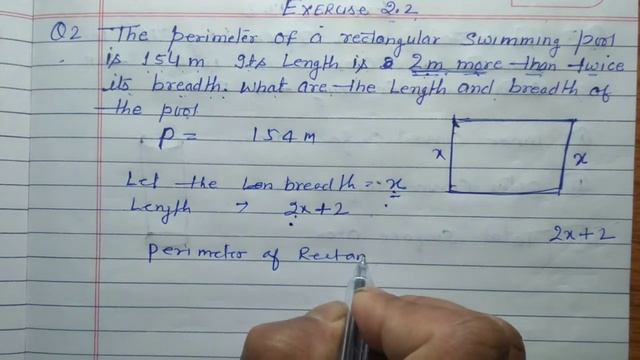 EXERCISE 2.2
Q2 The perimeter of a rectangular swimming pool
is 154m Its Length is 2m more than twice
its breadth. What are the Length and breadth of
the pool
P = 154m
x x
Let the breadth = x
Length → 2x+2
2x+2
Perimeter of Rectan